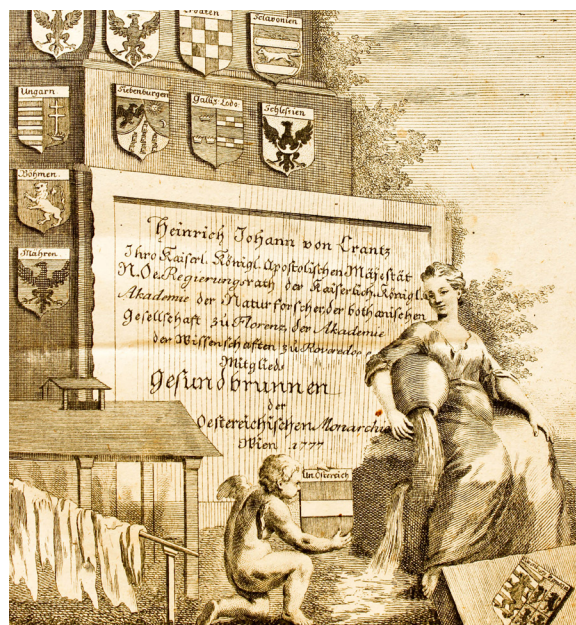 Croaten
Sclavonien
Ungarn
Siebenburgen
Galliz: Lodo:
Schlesien
Böhmen
Mahren
Heinrich Johann von Crantz
Ihro Kaiserl. Königl. Apostolischen Majestät
N. Oe. Regierungsrath der Kaiserlich. Königl.
Akademie der Naturforscher der bothanischen
Gesellschaft zu Florenz, der Akademie
der Wissenschaften zu Roveredo
Mitglieds
Gesundbrunnen
der
Oestereichischen Monarchie
Wien 1777
Un: Ostereich